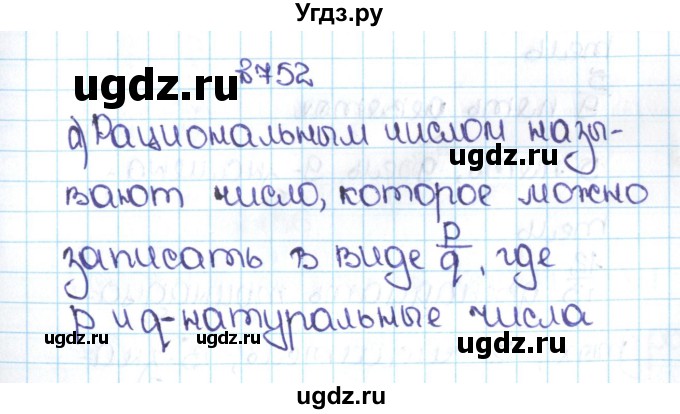 Угдз.ру
ugdz.ru
№752
а) Рациональным числом назы-
ugdz.ru
вают число, которое можно
записать в виде p/q, где
ugdz.ru
p и q - натуральные числа
ugdz.ru
ugdz.ru